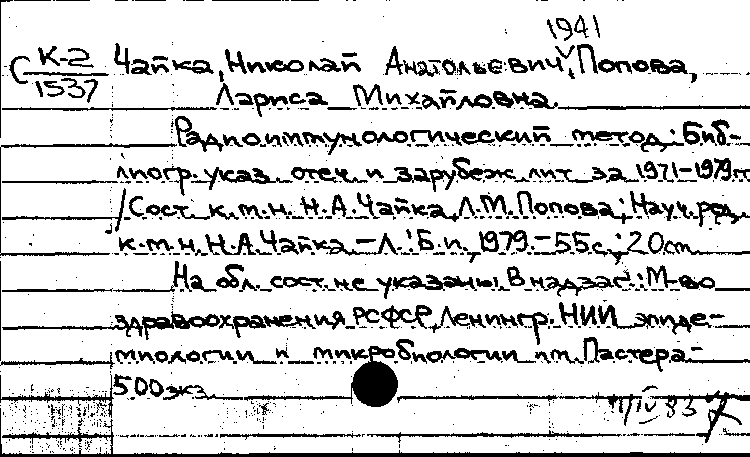 1941
К-2 Чапка, Николай Анатольевич, Попова,
С 1537 Лариса Михайловна.
Радиоиммунологический метод: Биб-
лиогр. указ. отеч. и зарубеж. лит. за 1971-1979 гг.
/Сост. к.т.н. Н.А. Чапка, Л.М. Попова; Науч. ред.
к.т.н. Н.А. Чапка. - Л.: Б. и., 1979. - 55 с.; 20 см.
На обл. сост. не указаны. В надзаг.: М-во
здравоохранения РСФСР, Ленингр. НИИ эпиде-
миологии и микробиологии им. Пастера -
500 экз.
IV 83